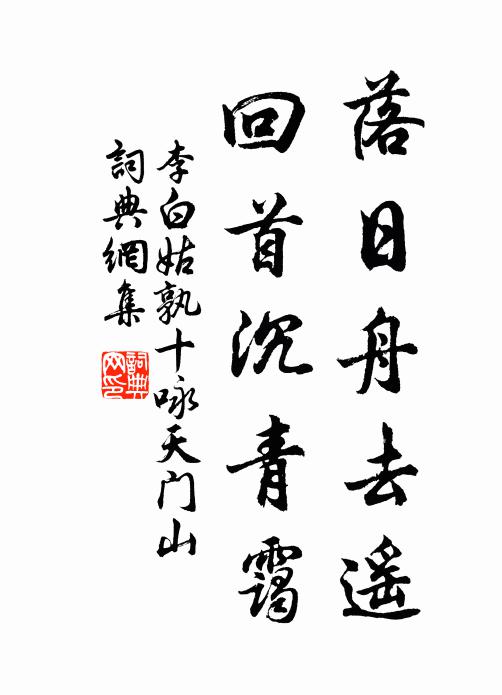 落日舟去遥
回首沉青靄
李白姑孰十咏天门山
詞典網集
詞典网印